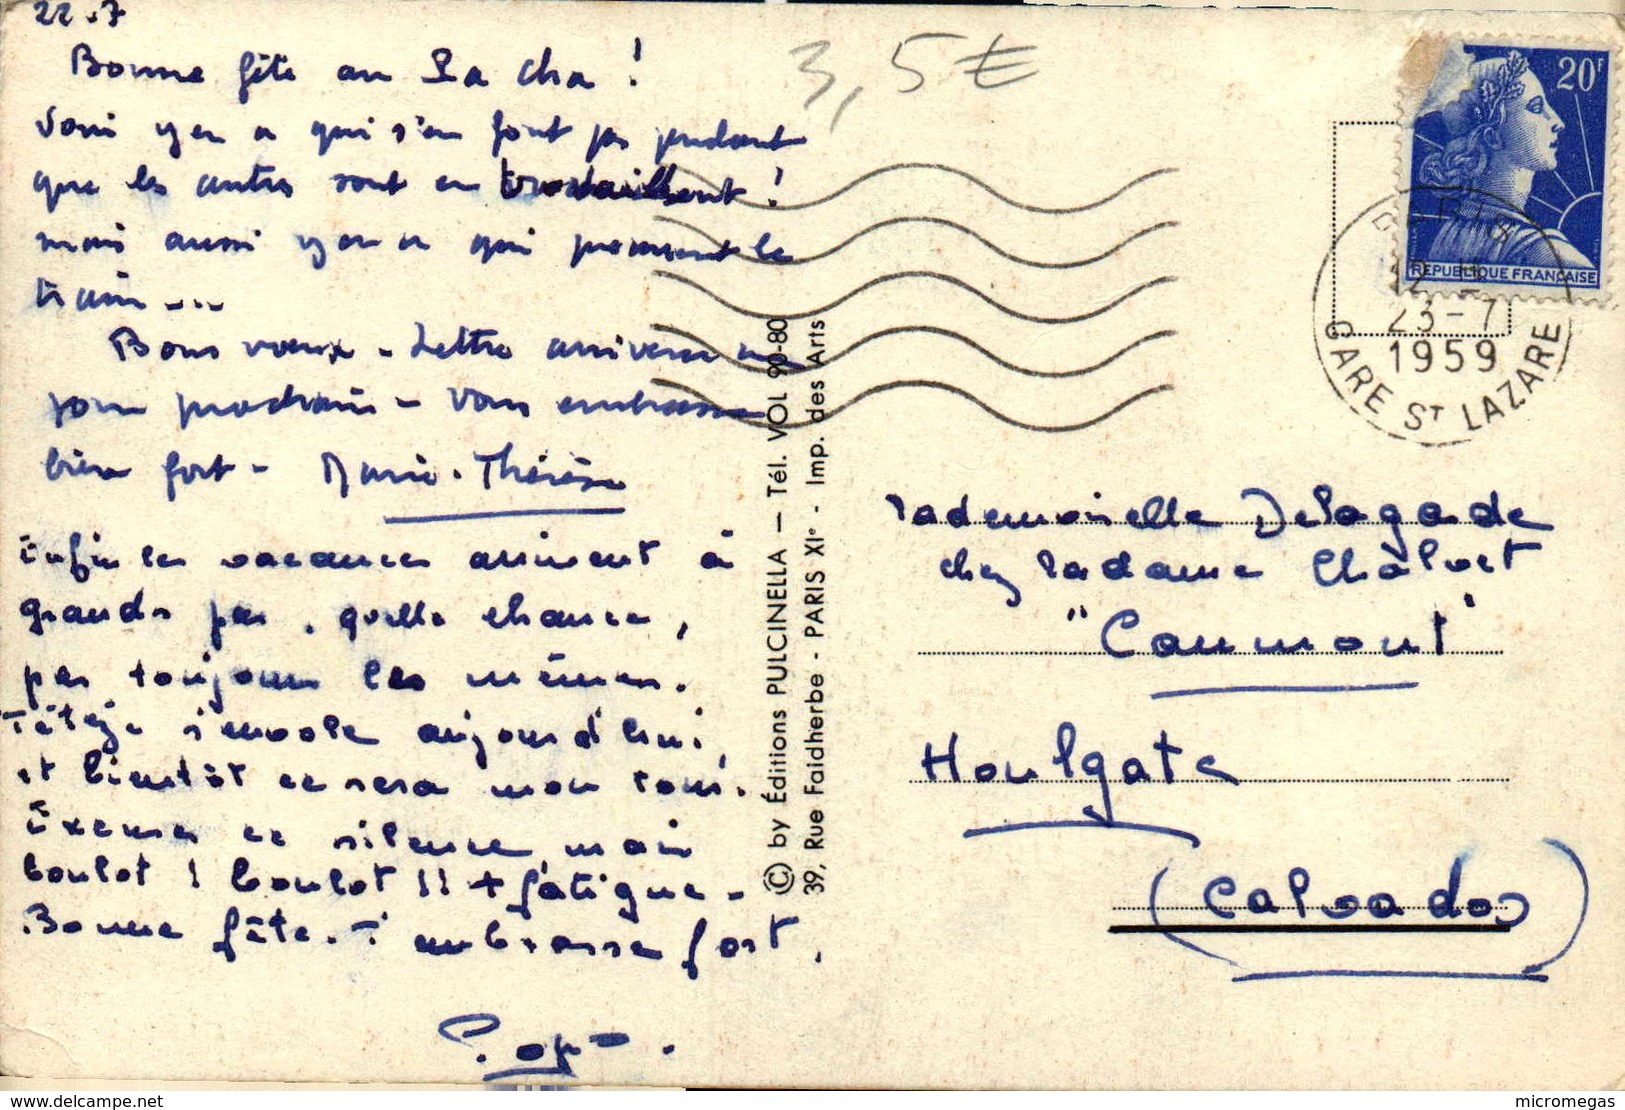 22.7
Bonne fête au Pa cha !
Voui y en a qui s'en font pas pendant
que les autres sont en travaillent !
mais aussi y en a qui prennent le
train ...
Bons vœux - Lettre arrivera un
jour prochain - Vous embrasse
bien fort - Marie-Thérèse
Enfin les vacances arrivent à
grands pas, quelle chance,
pas toujours les mêmes.
s'envole aujourd'hui,
et bientôt ce sera mon tour.
Excuses ce silence, mais
boulot ! boulot !! + fatigue -
Bonne fête. T'embrasse fort,
3,5€
© by Éditions PULCINELLA — Tél. VOL 90-80
39, Rue Faidherbe - PARIS XIe - Imp. des Arts
20F
REPUBLIQUE FRANÇAISE
PARIS
23-7
1959
GARE ST LAZARE
Mademoiselle Delagarde
chez Madame Châlvet
"Caumont"
Houlgate
(Calvados)
www.delcampe.net
micromegas